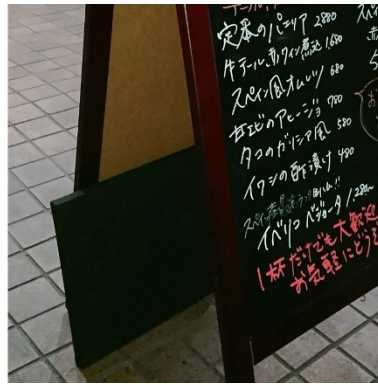 定番のパエリア 2,880
牛テール赤ワイン煮込 1,680
スペイン風オムレツ 680
芝エビのアヒージョ 980
タコのガリシア風 580
イワシの酢漬け 480
イベリコベジョータ 1,280〜
1杯だけでも大歓迎
お気軽にどうぞ